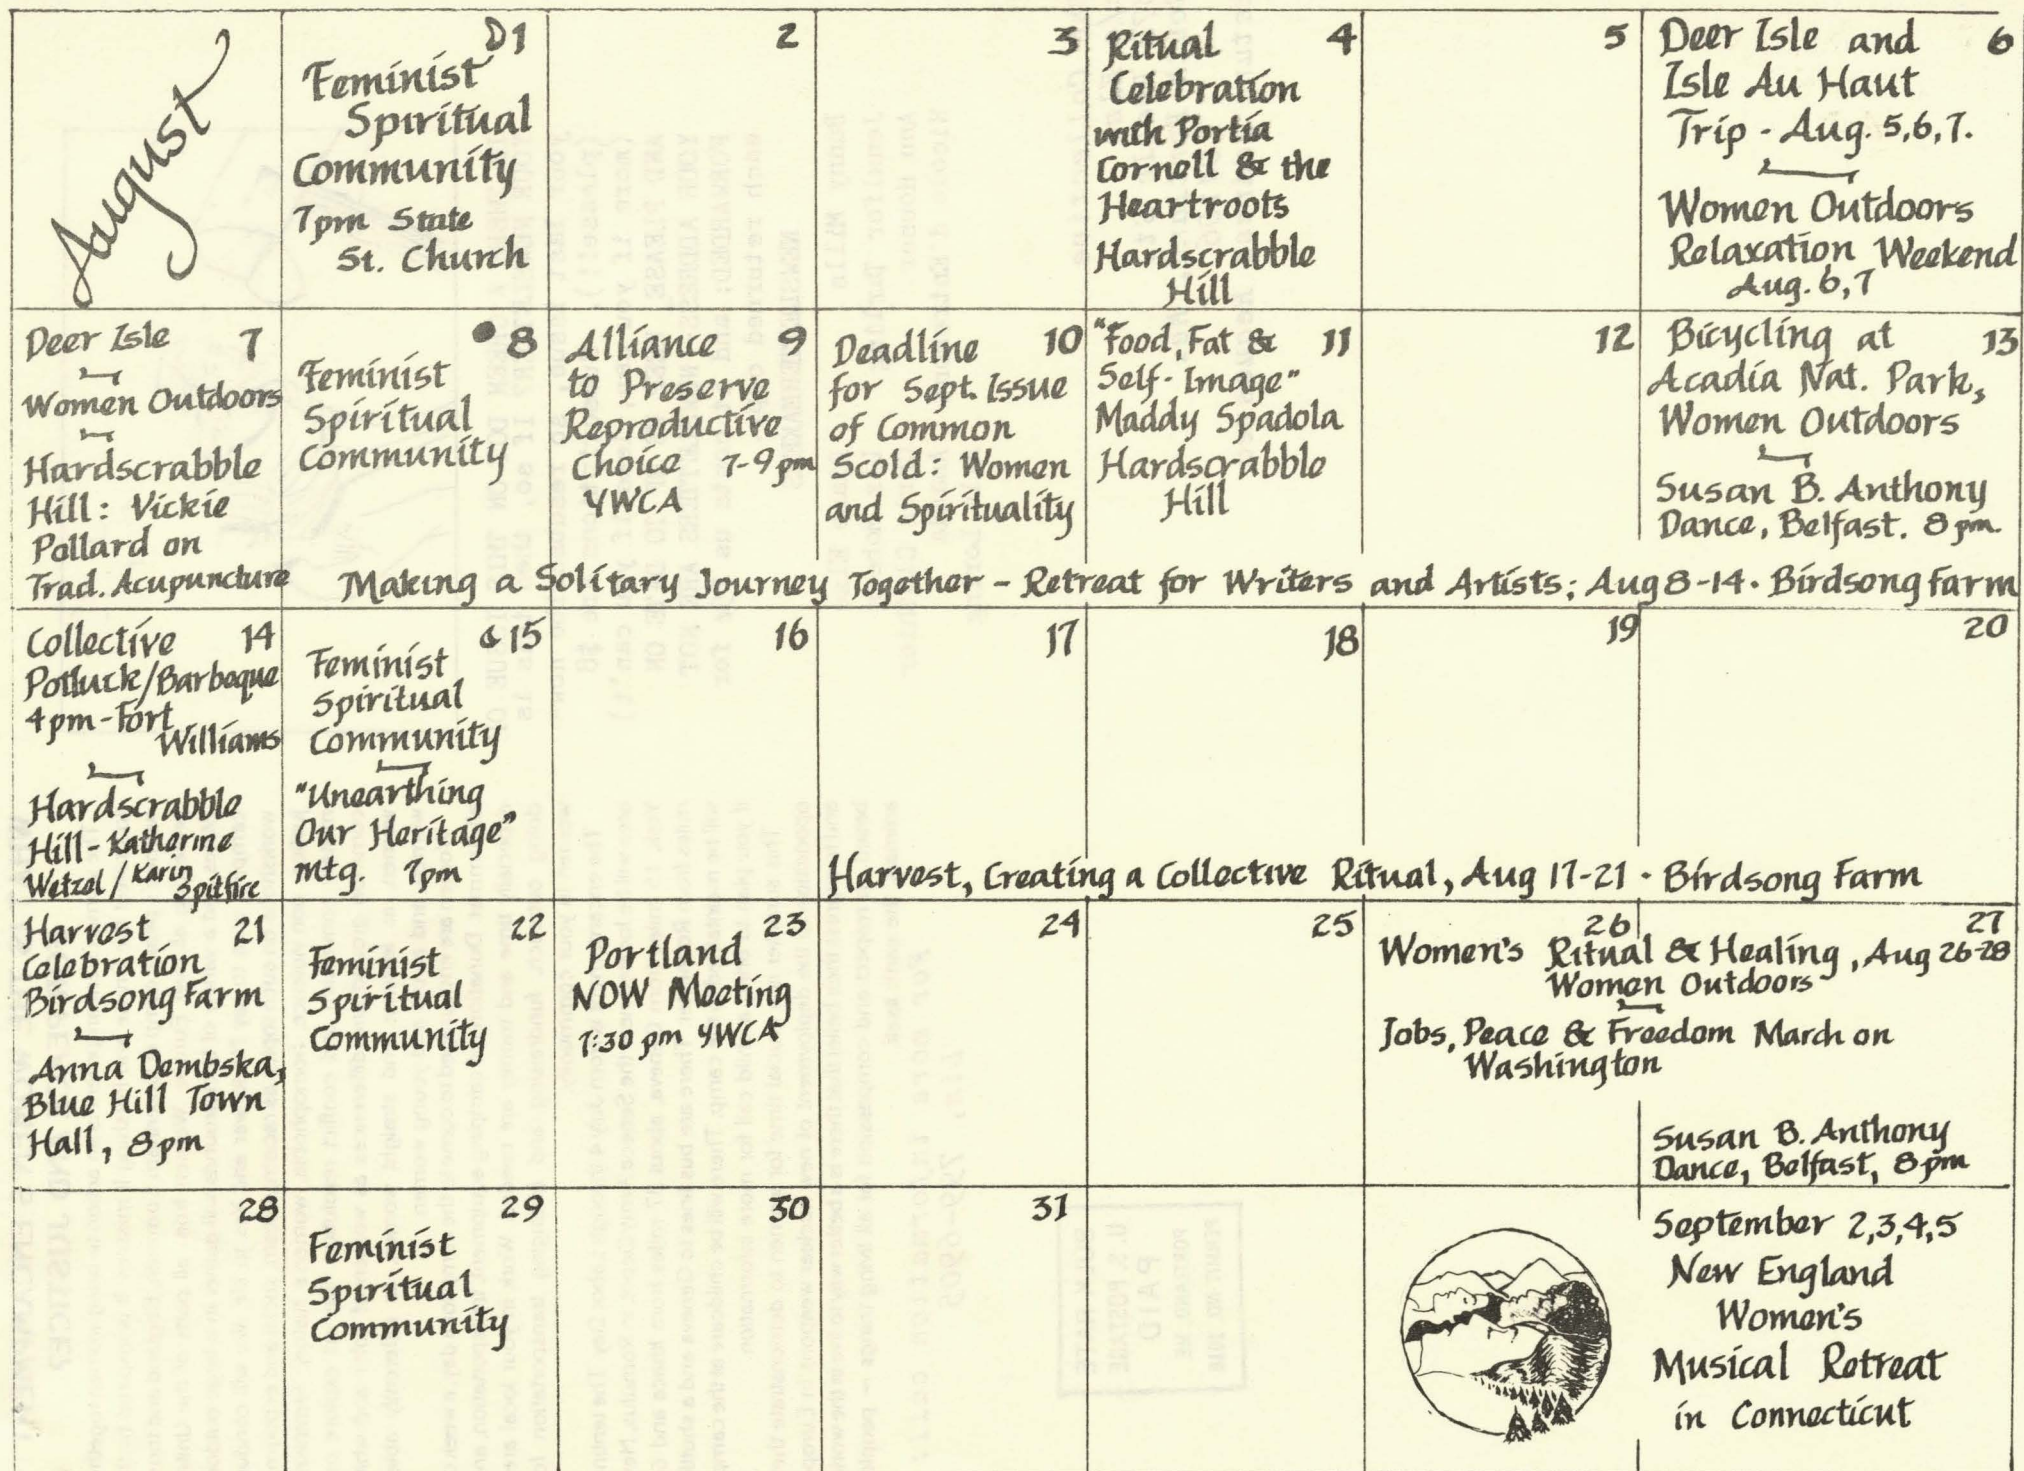 August
1
Feminist
Spiritual
Community
7pm State
St. Church
2
3
4
Ritual
Celebration
with Portia
Cornell & the
Heartroots
Hardscrabble
Hill
5
6
Deer Isle and
Isle Au Haut
Trip - Aug. 5,6,7.
Women Outdoors
Relaxation Weekend
Aug. 6,7
7
Deer Isle
Women Outdoors
Hardscrabble
Hill: Vickie
Pollard on
Trad. Acupuncture
8
Feminist
Spiritual
Community
9
Alliance
to Preserve
Reproductive
Choice 7-9pm
YWCA
10
Deadline
for Sept. Issue
of Common
Scold: Women
and Spirituality
11
"Food, Fat &
Self-Image"
Maddy Spadola
Hardscrabble
Hill
12
13
Bicycling at
Acadia Nat. Park,
Women Outdoors
Susan B. Anthony
Dance, Belfast. 8pm.
Making a Solitary Journey Together - Retreat for Writers and Artists; Aug 8-14 · Birdsong Farm
14
Collective
Potluck/Barbeque
4pm-Fort
Williams
Hardscrabble
Hill - Katherine
Wetzel / Karin
Spitfire
15
Feminist
Spiritual
Community
"Unearthing
Our Heritage"
mtg. 7pm
16
17
18
19
20
Harvest, Creating a Collective Ritual, Aug 17-21 · Birdsong Farm
21
Harvest
Celebration
Birdsong Farm
Anna Dembska,
Blue Hill Town
Hall, 8pm
22
Feminist
Spiritual
Community
23
Portland
NOW Meeting
7:30 pm YWCA
24
25
26
27
Women's Ritual & Healing, Aug 26-28
Women Outdoors
Jobs, Peace & Freedom March on
Washington
Susan B. Anthony
Dance, Belfast, 8pm
28
29
Feminist
Spiritual
Community
30
31
September 2,3,4,5
New England
Women's
Musical Retreat
in Connecticut